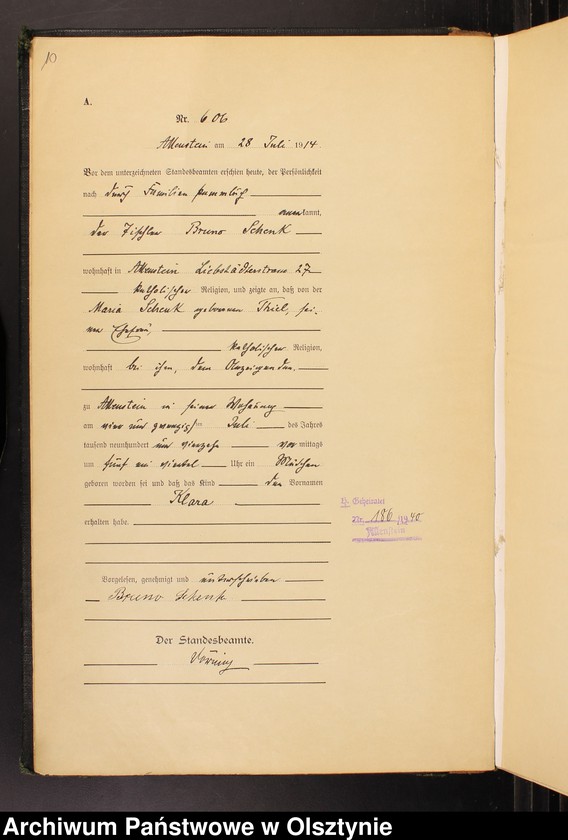 10
A.
Nr. 606
Allenstein am 28 Juli 1914
Vor dem unterzeichneten Standesbeamten erschien heute, der Persönlichkeit
nach durch Familien
anerkannt,
der Tischler Bruno Schenk
wohnhaft in Allenstein Liebstädterstrasse 27
katholischer Religion, und zeigte an, daß von der
Maria Schenk geborenen Thiel, sei-
ner Ehefrau,
katholischer Religion,
wohnhaft bei ihm, dem Anzeigenden,
zu Allenstein in seiner Wohnung
am vier und zwanzigsten Juli des Jahres
tausend neunhundert und vierzehn vor mittags
um fünf ein viertel Uhr ein Mädchen
geboren worden sei und daß das Kind den Vornamen
Klara
erhalten habe.
Vorgelesen, genehmigt und unterschrieben
Bruno Schenk
Der Standesbeamte.
Nr. 186/1940
Allenstein
Archiwum Państwowe w Olsztynie